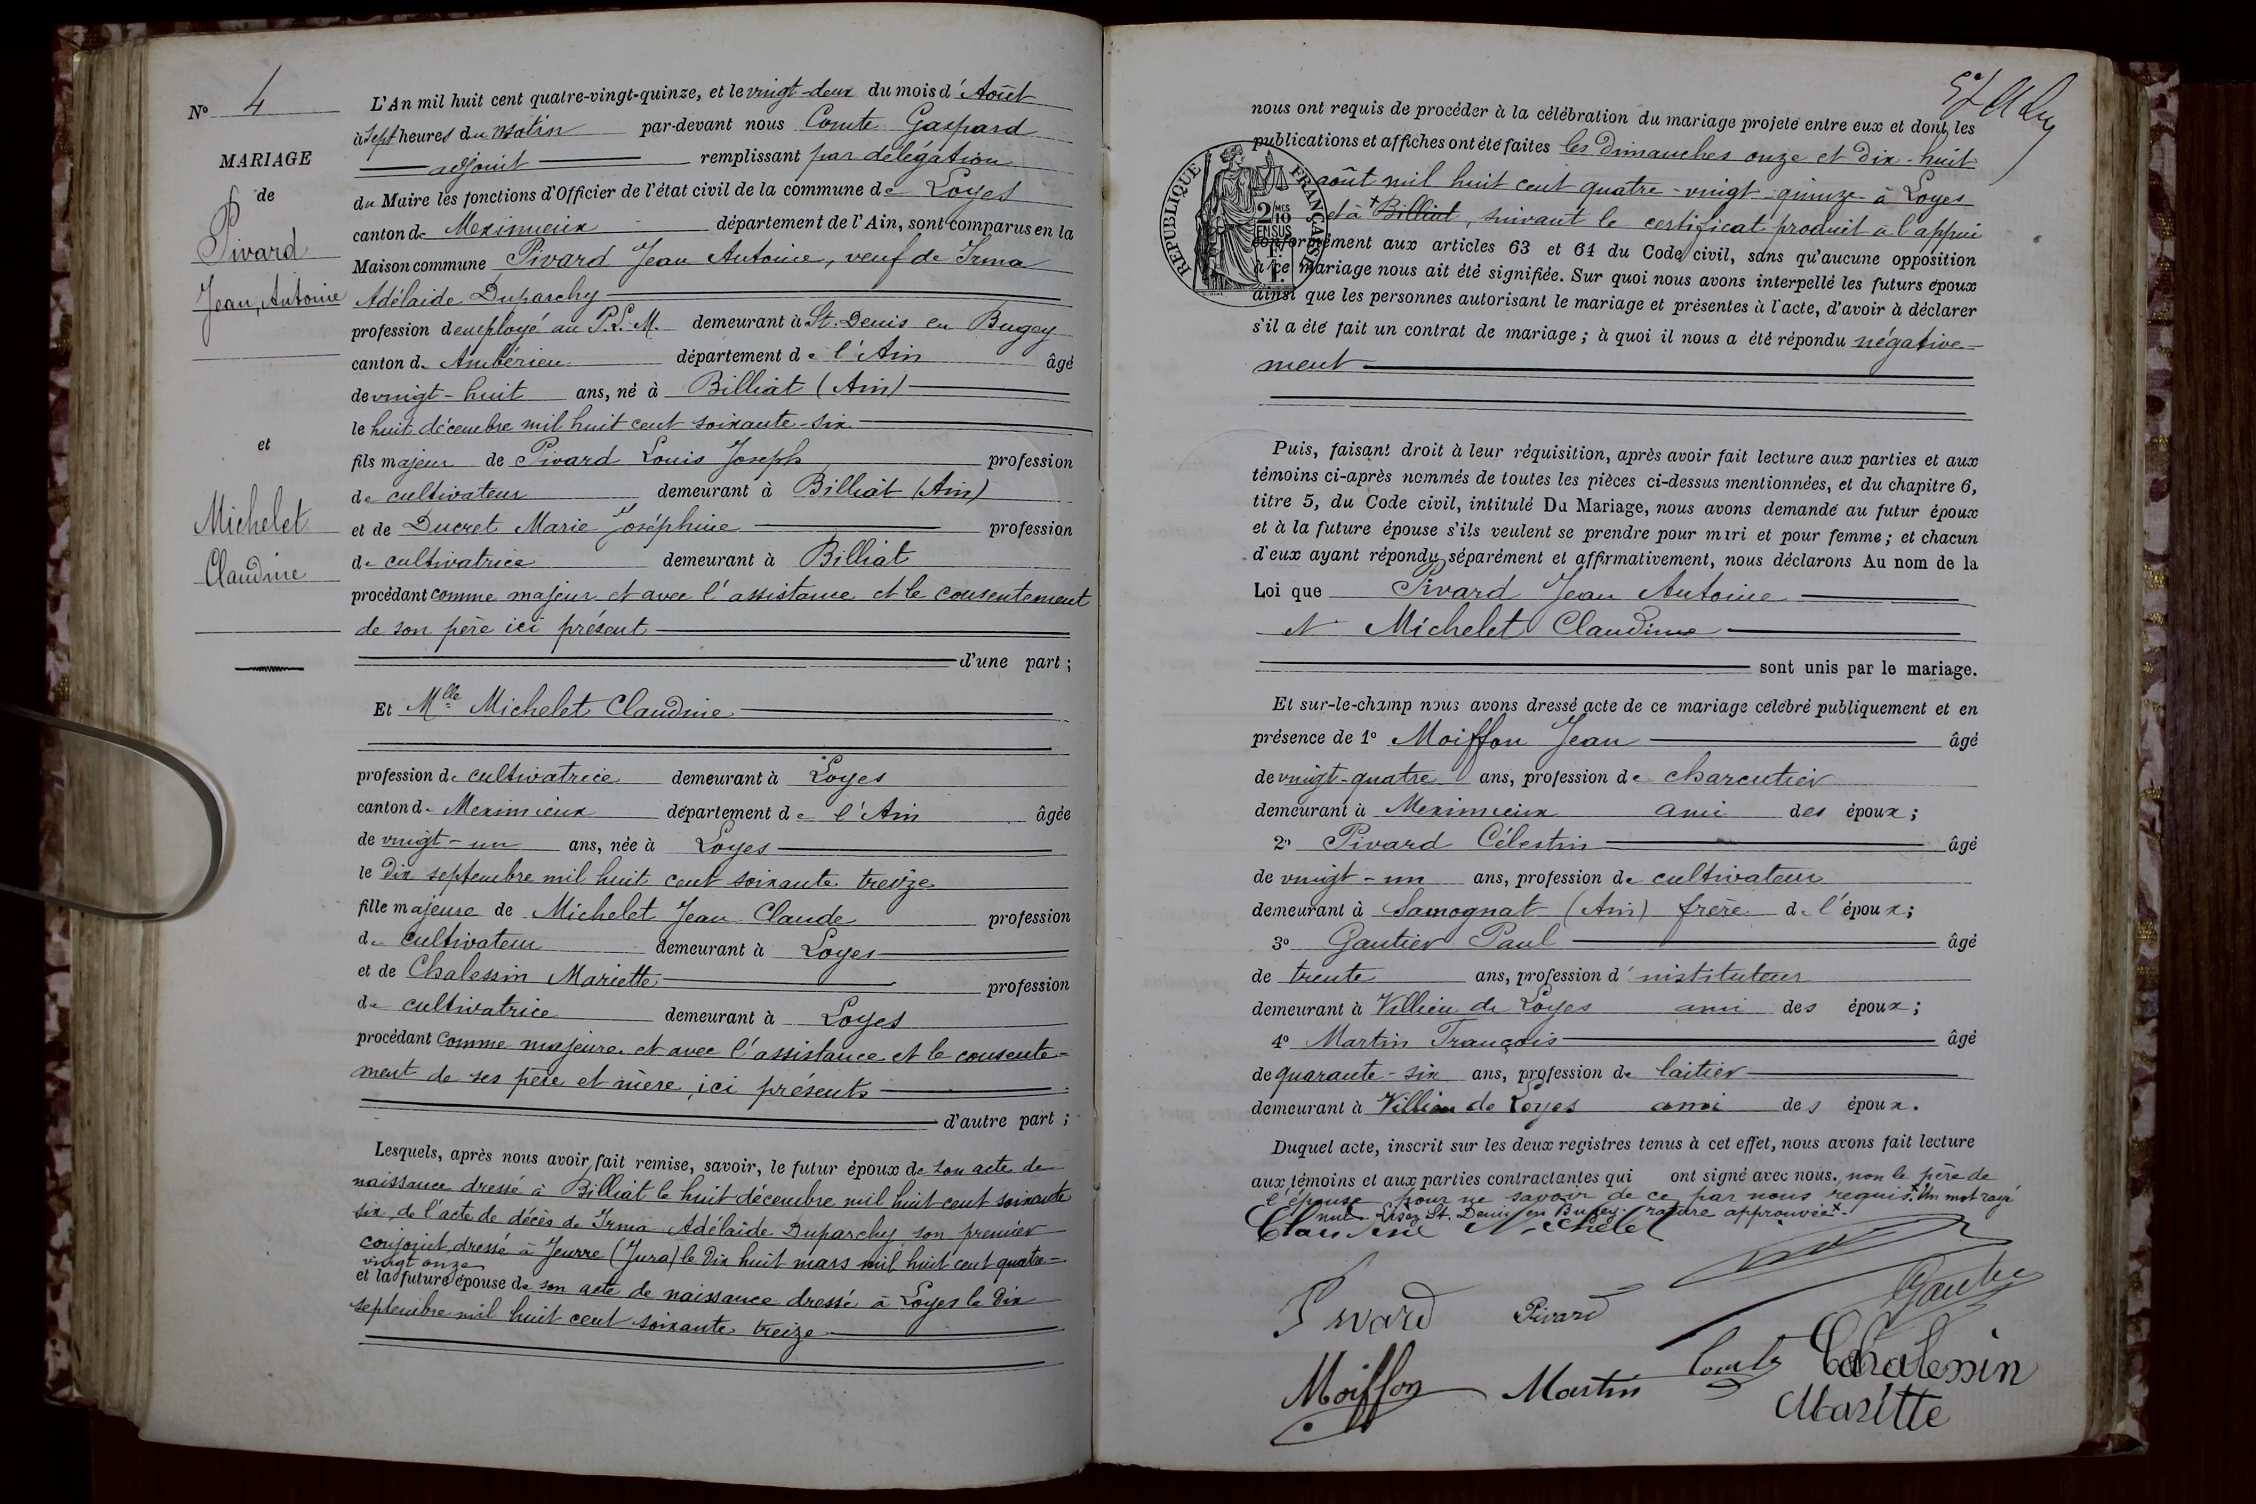 N° 4
MARIAGE
de
Pivard
Jean, Antoine
et
Michelet
Claudine
L'An mil huit cent quatre-vingt-quinze, et le vingt-deux du mois d'Août
à sept heures du matin par-devant nous Comte Gaspard
adjoint remplissant par délégation
du Maire les fonctions d'Officier de l'état civil de la commune de Loyes
canton de Meximieux département de l'Ain, sont comparus en la
Maison commune Pivard Jean Antoine, veuf de Irma
Adélaide Duparchy
profession d'employé au P.L.M. demeurant à St. Denis en Bugey
canton d. Ambérieu département de l'Ain âgé
de vingt-huit ans, né à Billiat (Ain)
le huit décembre mil huit cent soixante-six
fils majeur de Pivard Louis Joseph profession
de cultivateur demeurant à Billiat (Ain)
et de Ducret Marie Joséphine profession
de cultivatrice demeurant à Billiat
procédant comme majeur et avec l'assistance et le consentement
de son père ici présent
d'une part ;
Et Mlle Michelet Claudine
profession de cultivatrice demeurant à Loyes
canton d. Meximieux département de l'Ain âgée
de vingt-un ans, née à Loyes
le dix septembre mil huit cent soixante treize
fille majeure de Michelet Jean Claude profession
de cultivateur demeurant à Loyes
et de Chalessin Mariette profession
de cultivatrice demeurant à Loyes
procédant comme majeure et avec l'assistance et le consente-
ment de ses père et mère, ici présents
d'autre part ;
Lesquels, après nous avoir fait remise, savoir, le futur époux de son acte de
naissance dressé à Billiat le huit décembre mil huit cent soixante
six, de l'acte de décès de Irma Adélaide Duparchy son premier
conjoint dressé à Jeurre (Jura) le dix huit mars mil huit cent quatre-
vingt onze
et la future épouse de son acte de naissance dressé à Loyes le dix
septembre mil huit cent soixante treize
nous ont requis de procéder à la célébration du mariage projeté entre eux et dont les
publications et affiches ont été faites les dimanches onze et dix-huit
août mil huit cent quatre-vingt-quinze à Loyes
et à + Billiat, suivant le certificat produit à l'appui
conformément aux articles 63 et 64 du Code civil, sans qu'aucune opposition
à ce mariage nous ait été signifiée. Sur quoi nous avons interpellé les futurs époux
ainsi que les personnes autorisant le mariage et présentes à l'acte, d'avoir à déclarer
s'il a été fait un contrat de mariage ; à quoi il nous a été répondu négative-
ment
RÉPUBLIQUE FRANÇAISE
2/10
EN SUS
1F.
Puis, faisant droit à leur réquisition, après avoir fait lecture aux parties et aux
témoins ci-après nommés de toutes les pièces ci-dessus mentionnées, et du chapitre 6,
titre 5, du Code civil, intitulé Du Mariage, nous avons demandé au futur époux
et à la future épouse s'ils veulent se prendre pour mari et pour femme ; et chacun
d'eux ayant répondu séparément et affirmativement, nous déclarons Au nom de la
Loi que Pivard Jean Antoine
et Michelet Claudine
sont unis par le mariage.
Et sur-le-champ nous avons dressé acte de ce mariage célébré publiquement et en
présence de 1° Moiffon Jean âgé
de vingt-quatre ans, profession de charcutier
demeurant à Meximieux ami des époux ;
2° Pivard Célestin âgé
de vingt-un ans, profession de cultivateur
demeurant à Samognat (Ain) frère de l'époux ;
3° Gautier Paul âgé
de trente ans, profession d'instituteur
demeurant à Villieu de Loyes ami des époux ;
4° Martin François âgé
de quarante-six ans, profession de laitier
demeurant à Villieu de Loyes ami des époux.
Duquel acte, inscrit sur les deux registres tenus à cet effet, nous avons fait lecture
aux témoins et aux parties contractantes qui ont signé avec nous. non le père de
l'épouse pour ne savoir de ce par nous requis. + Un mot rayé
nul. Lisez St. Denis en Bugey. rature approuvée +.
Claudine Michelet
Gautier
Pivard Pivard
Comte Chalessin
Moiffon Martin
Maritte